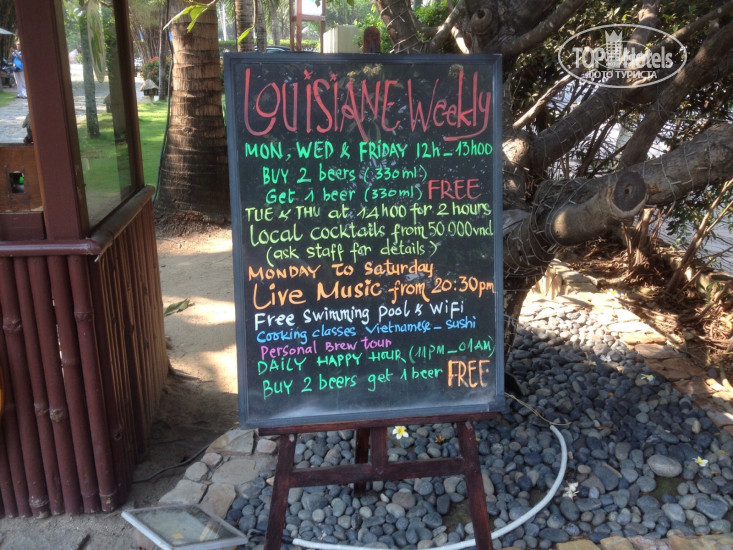 TOP Hotels
ФОТО ТУРИСТА
LOUISIANE Weekly
MON, WED & FRIDAY 12h_13h00
BUY 2 beers (330ml)
Get 1 beer (330ml) FREE
TUE & THU at 14h00 for 2 hours
Local cocktails from 50.000vnd
(ask staff for details)
MONDAY TO Saturday
Live Music from 20:30pm
Free Swimming pool & WiFi
Cooking classes Vietnamese_sushi
Personal Brew tour
DAILY HAPPY HOUR (11PM_01AM)
BUY 2 beers get 1 beer FREE